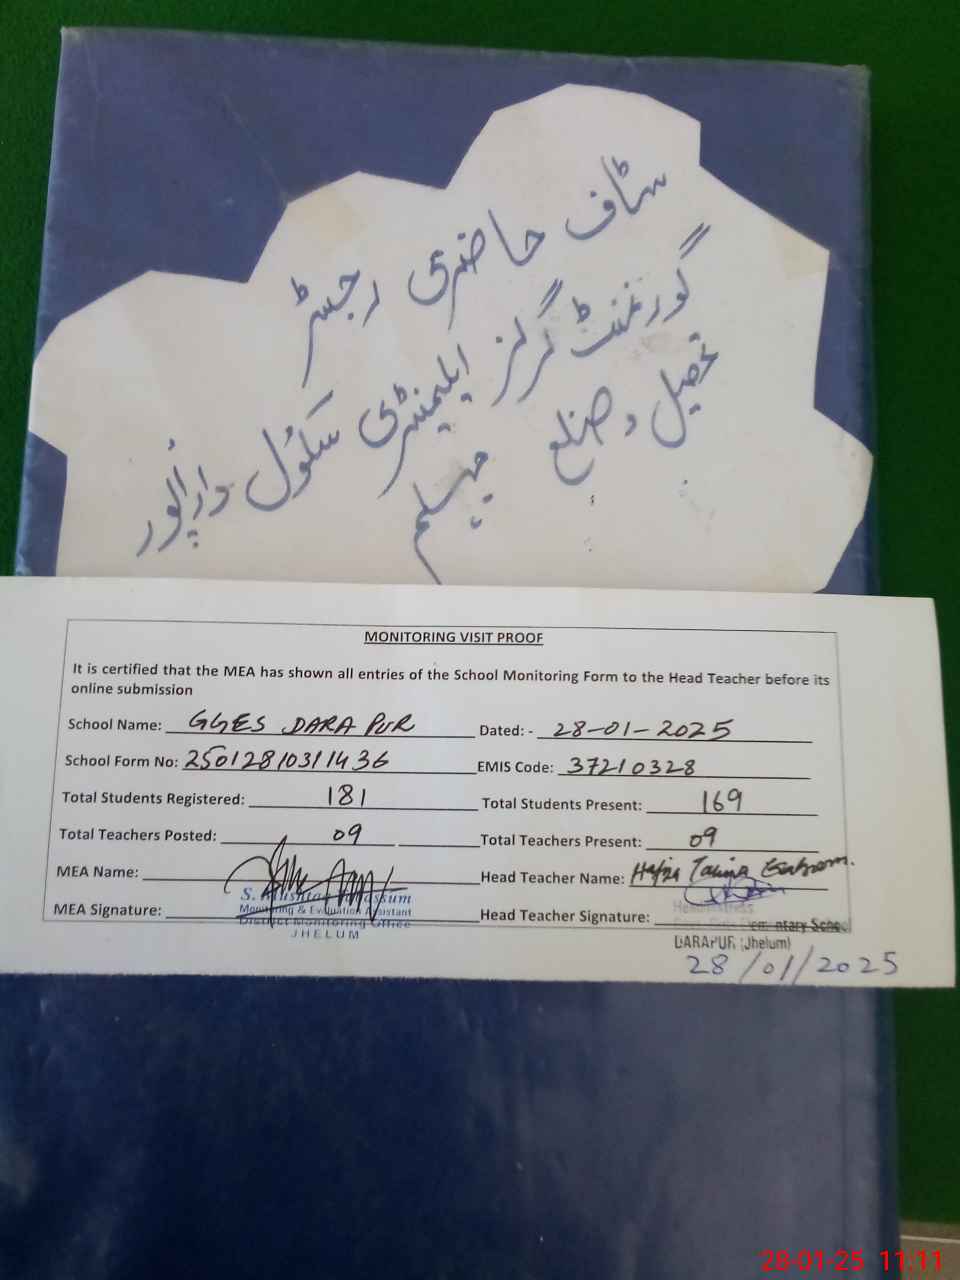 سٹاف حاضری رجسٹر
گورنمنٹ گرلز ایلیمنٹری سکول داراپُور
تحصیل و ضلع جہلم
MONITORING VISIT PROOF
It is certified that the MEA has shown all entries of the School Monitoring Form to the Head Teacher before its
online submission
School Name: GGES DARA PUR Dated: - 28-01-2025
School Form No: 25012810311436 EMIS Code: 37210328
Total Students Registered: 181 Total Students Present: 169
Total Teachers Posted: 09 Total Teachers Present: 09
MEA Name: Head Teacher Name: Hafza
S.
Monitoring & Evaluation Assistant
MEA Signature: Head Teacher Signature:
District Monitoring Office
JHELUM
Headmistress
Elementary School
DARAPUR (Jhelum)
28/01/2025
28-01-25 11:11